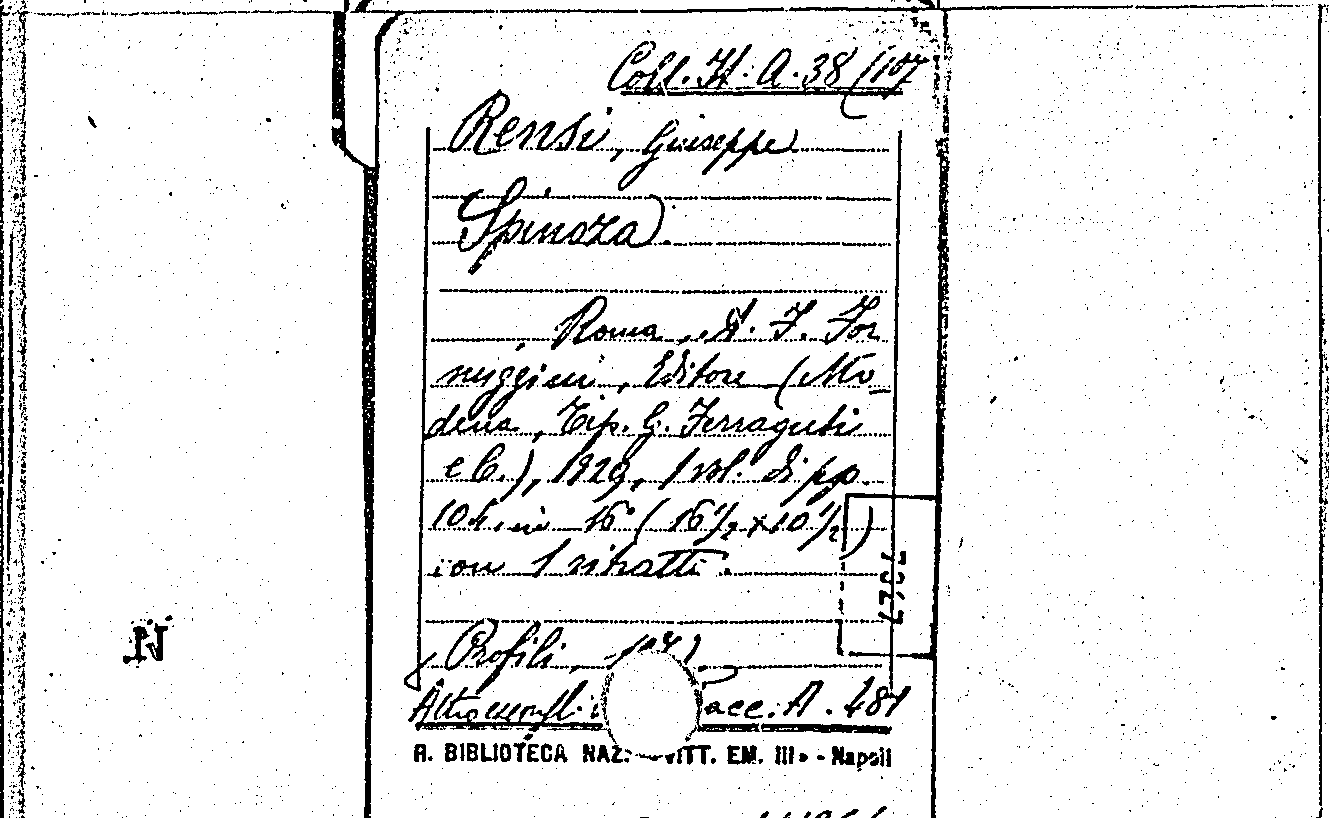 Coll. It. A. 38 (107
Rensi, Giuseppe
Spinoza.
Roma, A. F. For
miggini, Editore (Mo
dena, Tip. G. Ferraguti
e C.), 1929, 1 vol. di pp.
104, in 16° (16 1/2 x 10 1/2)
con 1 ritratto.
Profili, 107)
Altro esempl. Race. A. 481
R. BIBLIOTECA NAZ. VITT. EM. III» - Napoli